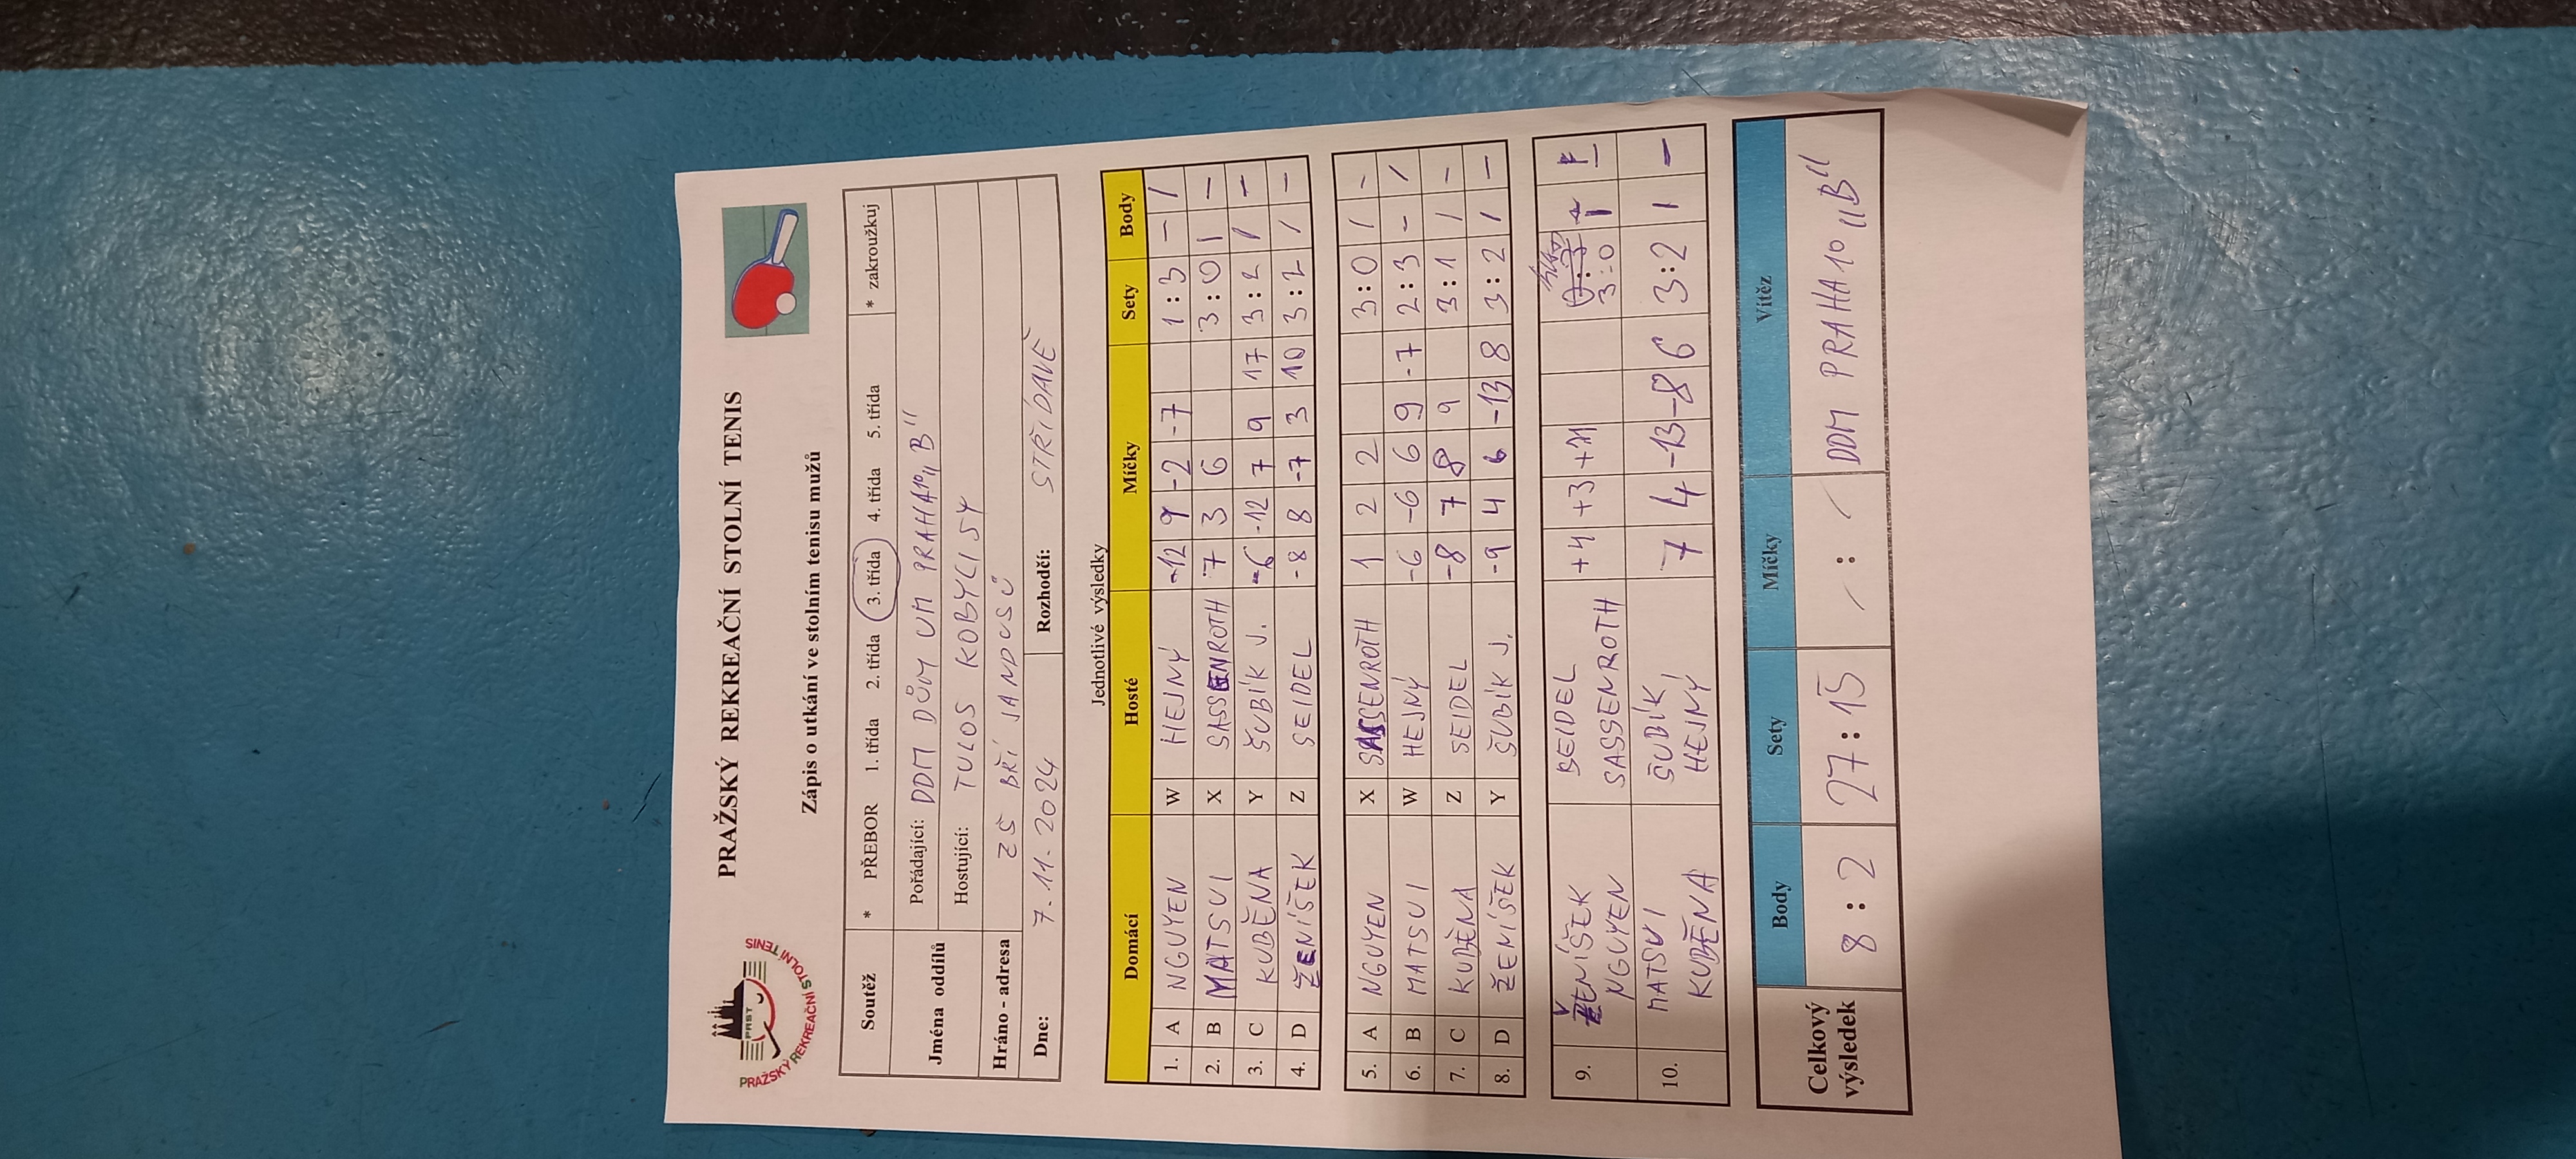 PRAŽSKÝ REKREAČNÍ STOLNÍ TENIS
PRST
PRAŽSKÝ REKREAČNÍ STOLNÍ TENIS
Zápis o utkání ve stolním tenisu mužů
Soutěž * PŘEBOR 1. třída 2. třída 3. třída 4. třída 5. třída * zakroužkuj
Jména oddílů Pořádající: DDM DŮM UM PRAHA 10 „B“
Hostující: TULOS KOBYLISY
Hráno - adresa ZŠ BŘÍ JANDUSŮ
Dne: 7.11.2024 Rozhodčí: STŘÍDAVĚ
Jednotlivé výsledky
Domácí Hosté Míčky Sety Body
1. A NGUYEN W HEJNÝ -12 9 -2 -7 1:3 - 1
2. B MATSUI X SASSENROTH 7 3 6 3:0 1 -
3. C KUBĚNA Y ŠUBÍK J. -6 -12 7 9 17 3:2 1 -
4. D ŽENÍŠEK Z SEIDEL -8 8 -7 3 10 3:2 1 -
5. A NGUYEN X SASSENROTH 1 2 2 3:0 1 -
6. B MATSUI W HEJNÝ -6 -6 6 9 -7 2:3 - 1
7. C KUBĚNA Z SEIDEL -8 7 8 9 3:1 1 -
8. D ŽENÍŠEK Y ŠUBÍK J. -9 4 6 -13 8 3:2 1 -
9. ŽENÍŠEK SEIDEL +4 +3
NGUYEN SASSENROTH 3:0 1 -
10. MATSUI ŠUBÍK 7 4 -13 -8 6 3:2 1 -
KUBĚNA HEJNÝ
Celkový výsledek Body Sety Míčky Vítěz
8 : 2 27 : 15 : DDM PRAHA 10 „B“